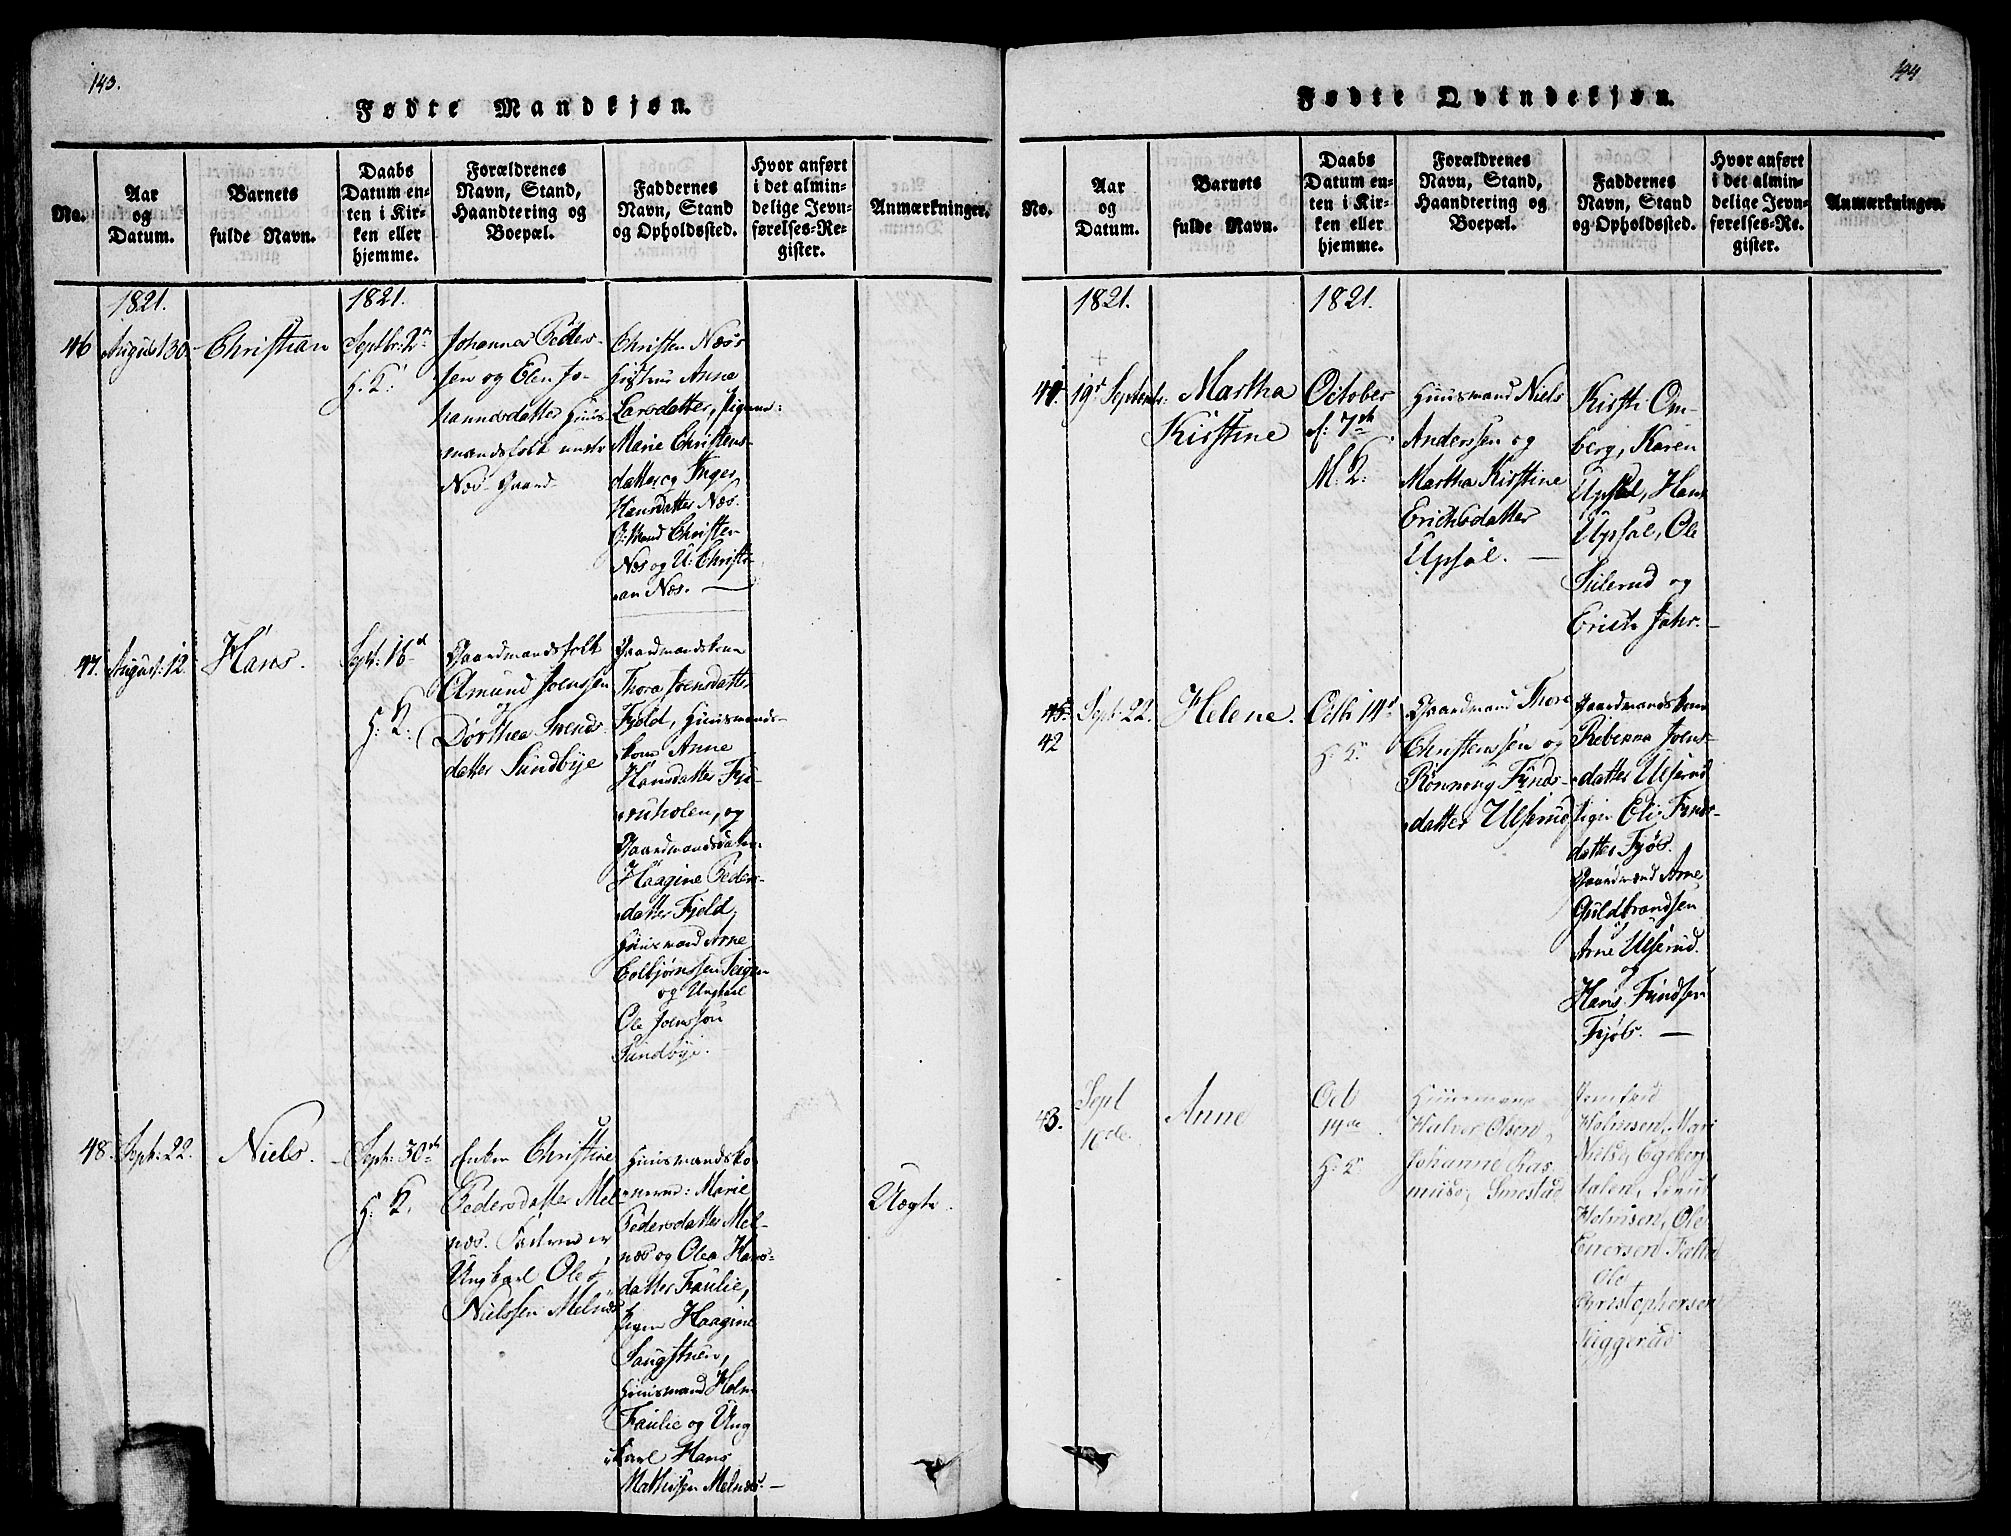 143.
Fødte Mandkjøn.
No.
Aar
og
Datum.
Barnets
fulde Navn.
Daabs
Datum en-
ten i Kir-
ken eller
hjemme.
Forældrenes
Navn, Stand,
Haandtering og
Boepæl.
Faddernes
Navn, Stand
og Opholdssted.
Hvor anført
i det almin-
delige Jevn-
førelses-Re-
gister.
Anmærkninger.
1821.
46
August 30.
Christian
1821.
Septbr: 2den
H. K:
Johannes Peders-
sen og Elen Jo-
hannesdatter Huus-
mandsfolk under
Næs-Gaard
Christen Næss
Hustrue Anne
Larsdatter, Pigerne:
Marie Christens-
datter og Inger
Hansdatter Næs.
G:Mand Christen
Næs og U: Christi-
an Næs.
47.
August: 12.
Hans.
Sept: 16d
H: K:
Gaardmandsfolk
Amund Joenssen
og
Dorthea Svends-
datter Sundbye
Gaardmandskone
Thora Joensdatter
Fjeld, Huusmands-
kone Anne
Hansdatter Fu-
ruholen, og
Gaardmandsdatter
Haagine Peders-
datter Fjeld,
Huusmand Arne
Colbjørnssen Teigen
og Ungkarl
Ole Joenssøn
Sundbye.
48.
Sept: 22.
Niels.
Sept: 30th
H: K.
Enken Christine
Pedersdatter Mel-
næs. Faderen er
Ungkarl Ole
Nielssen Melnæs
Huusmandsko-
nerne: Marie
Pedersdatter Mel-
næs og Olea Hans-
datter Faulie,
Pigen Haagine
Saugstuen,
Huusmand Holm
Faulie og Ung-
karl Hans
Mathissen Melnæs.
Uægte.
144
Fødte Qvindekjøn.
No.
Aar
og
Datum.
Barnets
fulde Navn.
Daabs
Datum en-
ten i Kir-
ken eller
hjemme.
Forældrenes
Navn, Stand,
Haandtering og
Boepæl.
Faddernes
Navn, Stand
og Opholdssted.
Hvor anført
i det almin-
delige Jevn-
førelses-Re-
gister.
Anmærkninger.
1821.
41.
19d Septembr:
Martha
Kirstine
1821.
October
d: 7th
M. K:
Huusmand Niels
Anderssen og
Martha Kirstine
Erichsdatter
Upsal.
Kirsti Om-
berg, Karen
Upsal, Hans
Upsal, Ole
Sulerud og
Erich Jahr.
45
42
Sept: 22.
Helene.
Octbr 14d
H: K.
Gaardmand Thore
Christenssen og
Rønnoug Finds-
datter Ulserud
Gaardmandskone
Rebenna Joens-
datter Ulserud
Pigen Eli Finds-
datter Fjøs.
Gaardmænd Arne
Guldbrandsen
Arne Ulserud.
og
Hans Findsen
Fjøls.
43.
Sept
16de.
Anne
Oct
14de
H: K.
Huusmand
Halver Olsen,
Johanne Ras-
musd, Smestad
Holmsen, Mari
Nielsd, Egeberg
dalen,
Holmsen, Ole
Enersen
Ole
Christophersen
Tuggerud